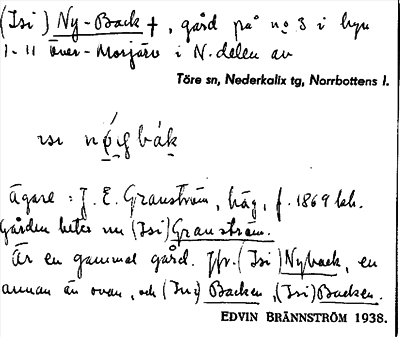 (Isi) Ny-Back †, gård på nº 3 i byn
1-11 Över-Morjärv i N. delen av
Töre sn, Nederkalix tg, Norrbottens l.
ɪsɪ bák
ägare: J. E. Granström, häg, f. 1869 här.
Gården heter nu (Isi) Granström.
Är en gammal gård. Jfr. (Isi) Nyback, en
annan än ovan, och (Isi) Backen, (Isi) Backen.
EDVIN BRÄNNSTRÖM 1938.